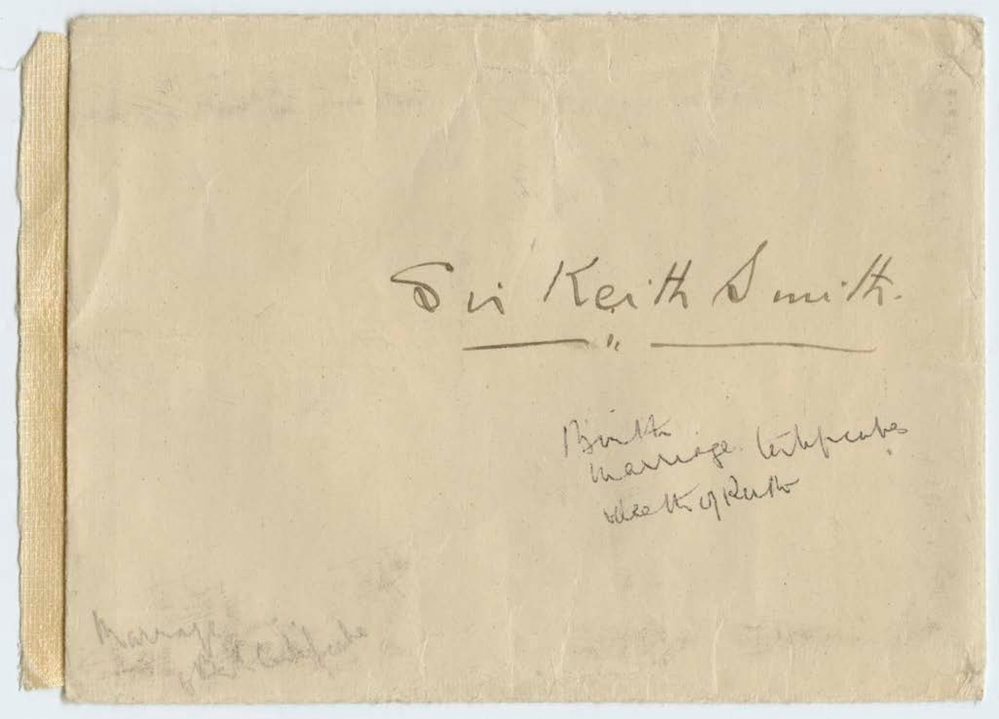 Sir Keith Smith.
"
Birth
Marriage. Certificates
death of Keith
Marriage
Certificate